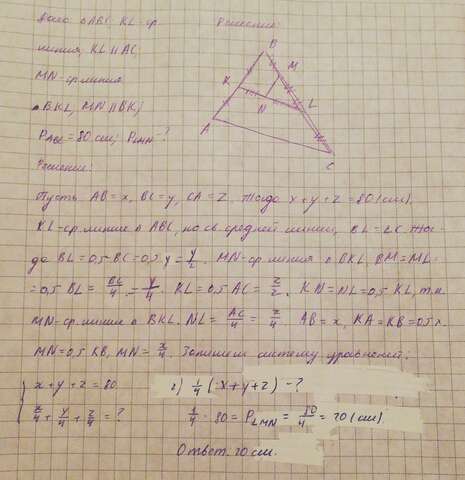 Дано: △ABC KL-ср.
Решение:
линия, KL || AC
MN-ср.линия
△BKL, MN || BK;
P ABC = 80 см; P LMN - ?
B
M
K
N
L
A
C
Решение:
Пусть AB = x, BC = y, CA = z. Тогда x + y + z = 80 (см).
KL-ср.линия △ ABC, по св. средней линии, BL = LC. Тог-
да BL = 0,5 BC = 0,5 y = y/2. MN-ср.линия △ BKL, BM = ML =
= 0,5 BL = BC/4 = y/4. KL = 0,5 AC = z/2. KN = NL = 0,5 KL, т.к.
MN-ср.линия △ BKL. NL = AC/4 = z/4. AB = x, KA = KB = 0,5 x.
MN = 0,5 KB, MN = x/4. Запишем систему уравнений:
x + y + z = 80 2) 1/4 (x + y + z) - ?
x/4 + y/4 + z/4 = ? 1/4 · 80 = P LMN = 80/4 = 20 (см).
Ответ. 20 см.